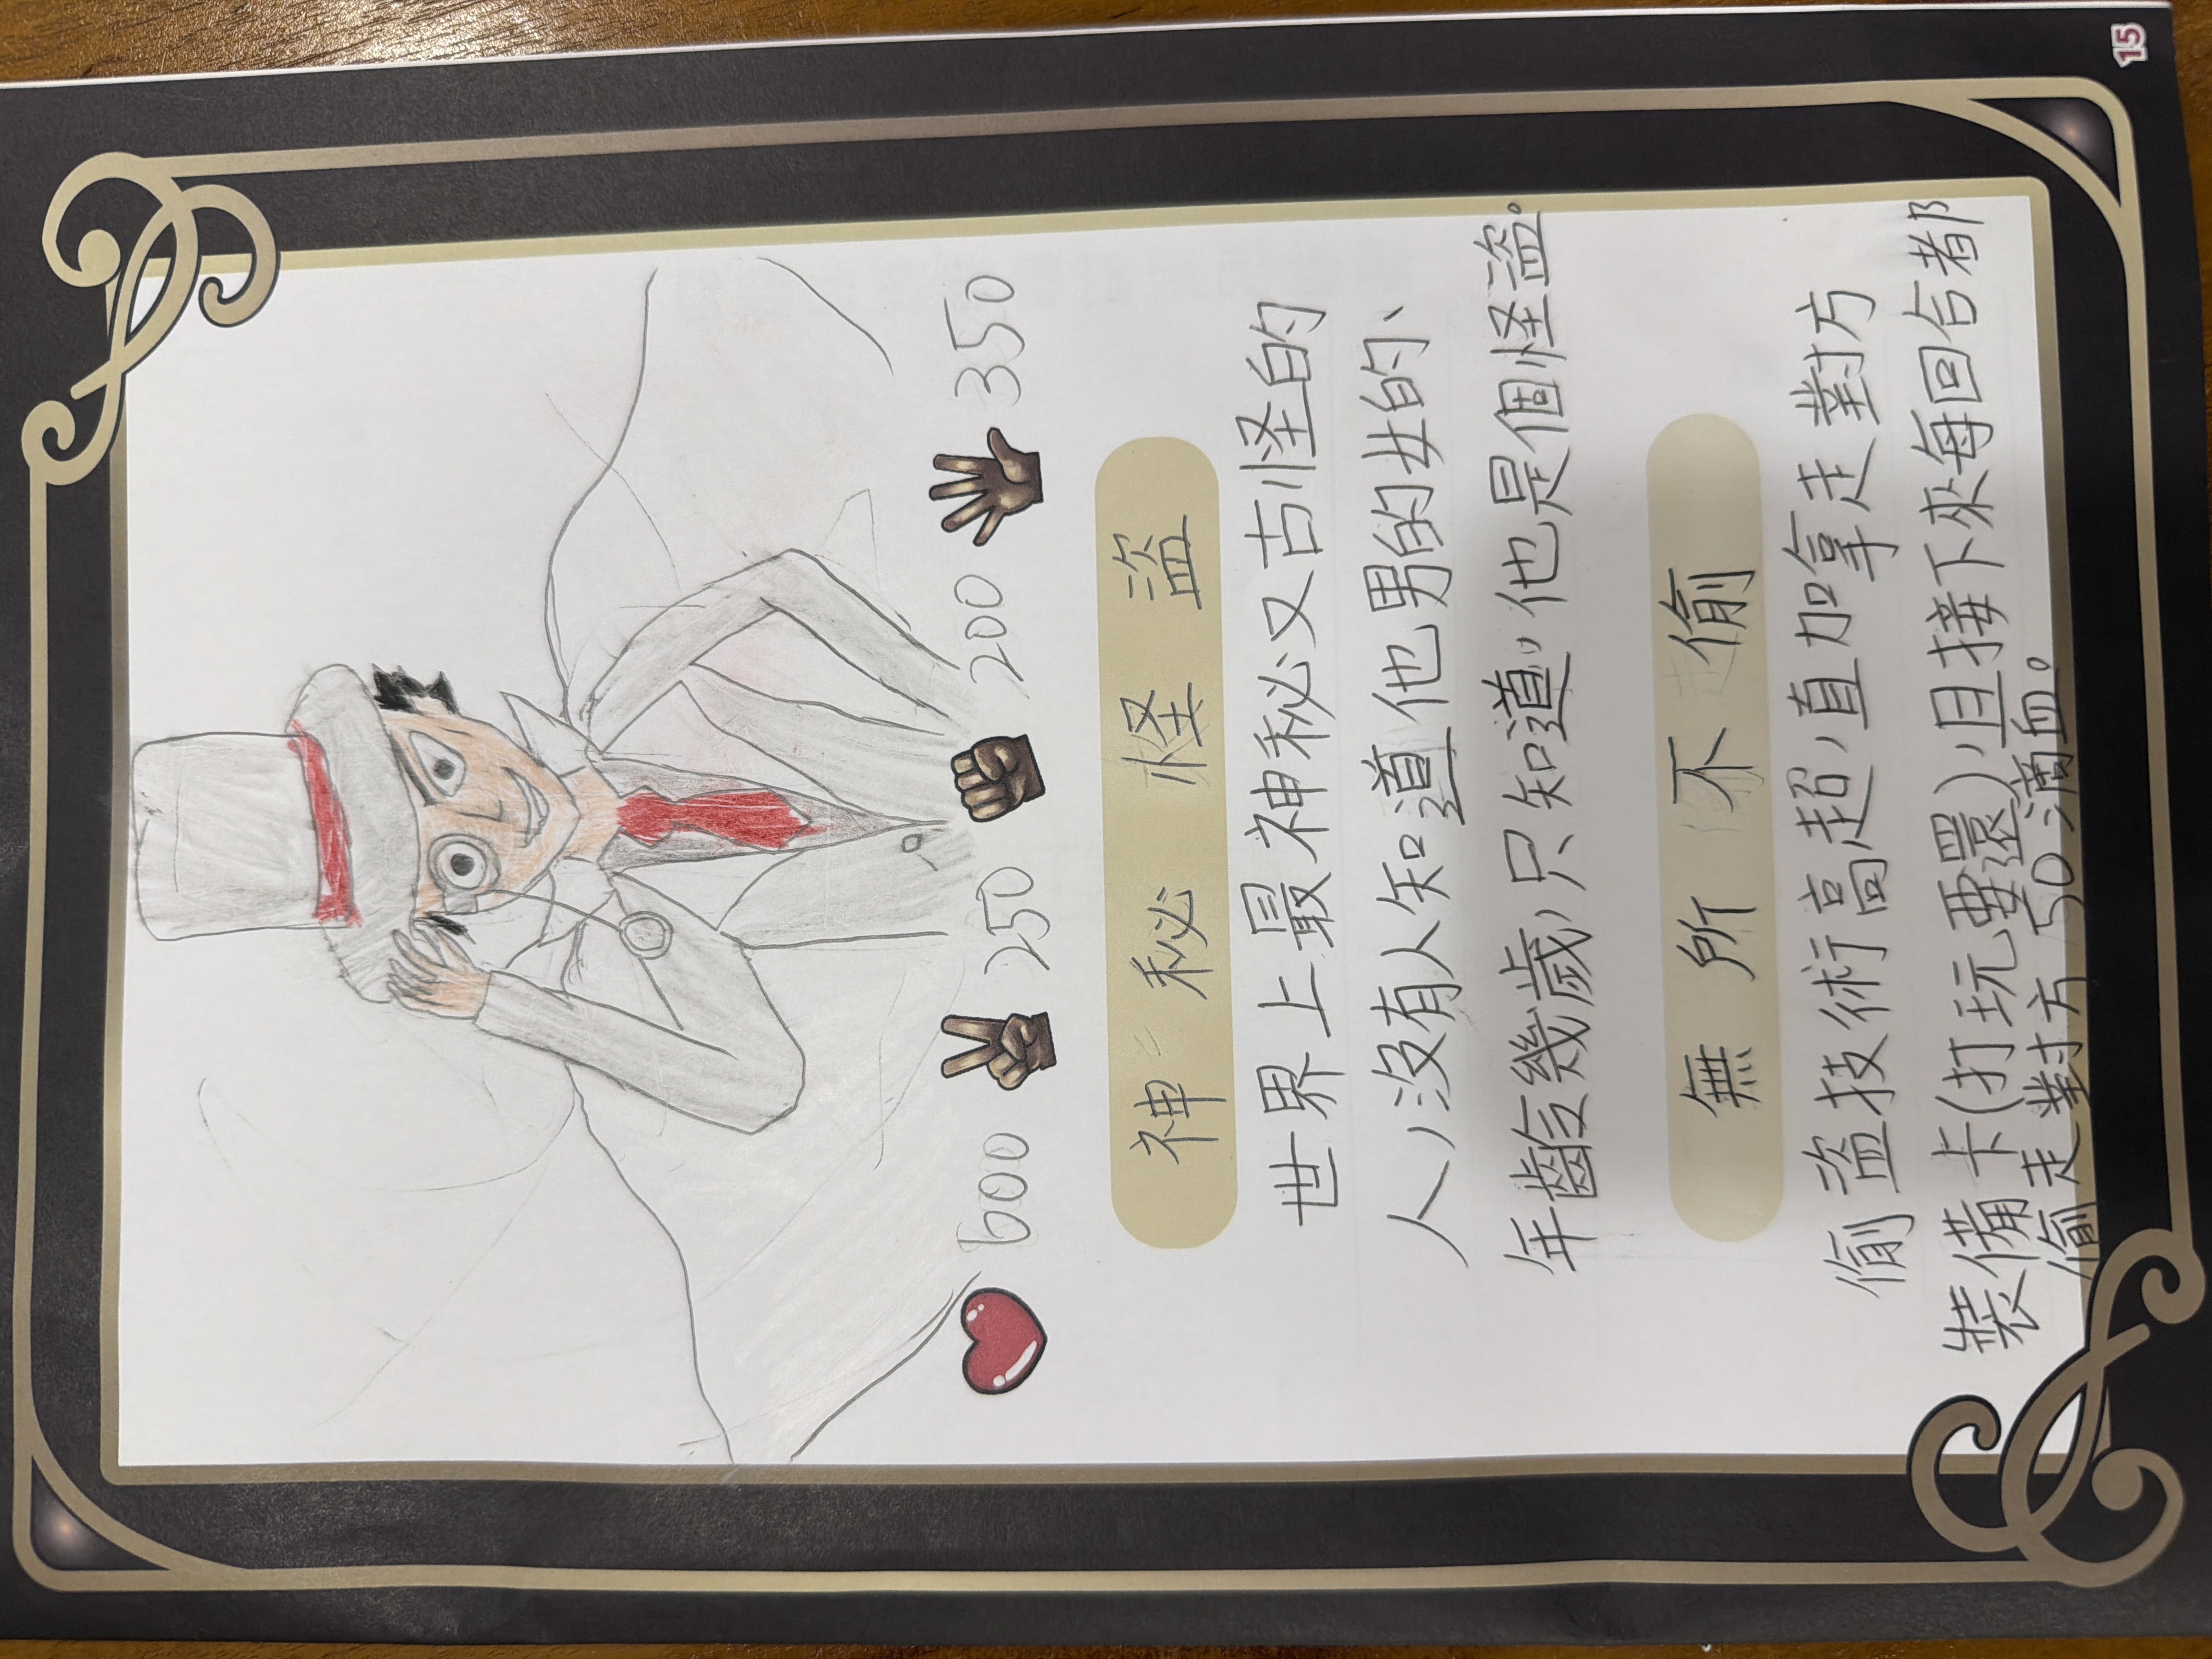 15
600 250 200 350
神秘怪盜
世界上最神秘又古怪的
人,沒有人知道他男的女的、
年齡幾歲,只知道,他也是個怪盜。
無所不偷
偷盜技術高超,直加拿走對方
裝備卡(打玩要還),且接下來每回合都
偷走對方50滴血。